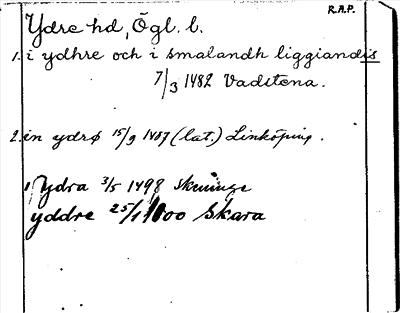 R.A.P.
Ydre hd, Ögl. l.
1. i ydhre och i smalandh liggiandis
7/3 1482 Vadstena.
2. in ydrø 15/9 1487 (lat.) Linköping.
Ydra 3/5 1498 Skeninge
yddre 25/1 1500 Skara